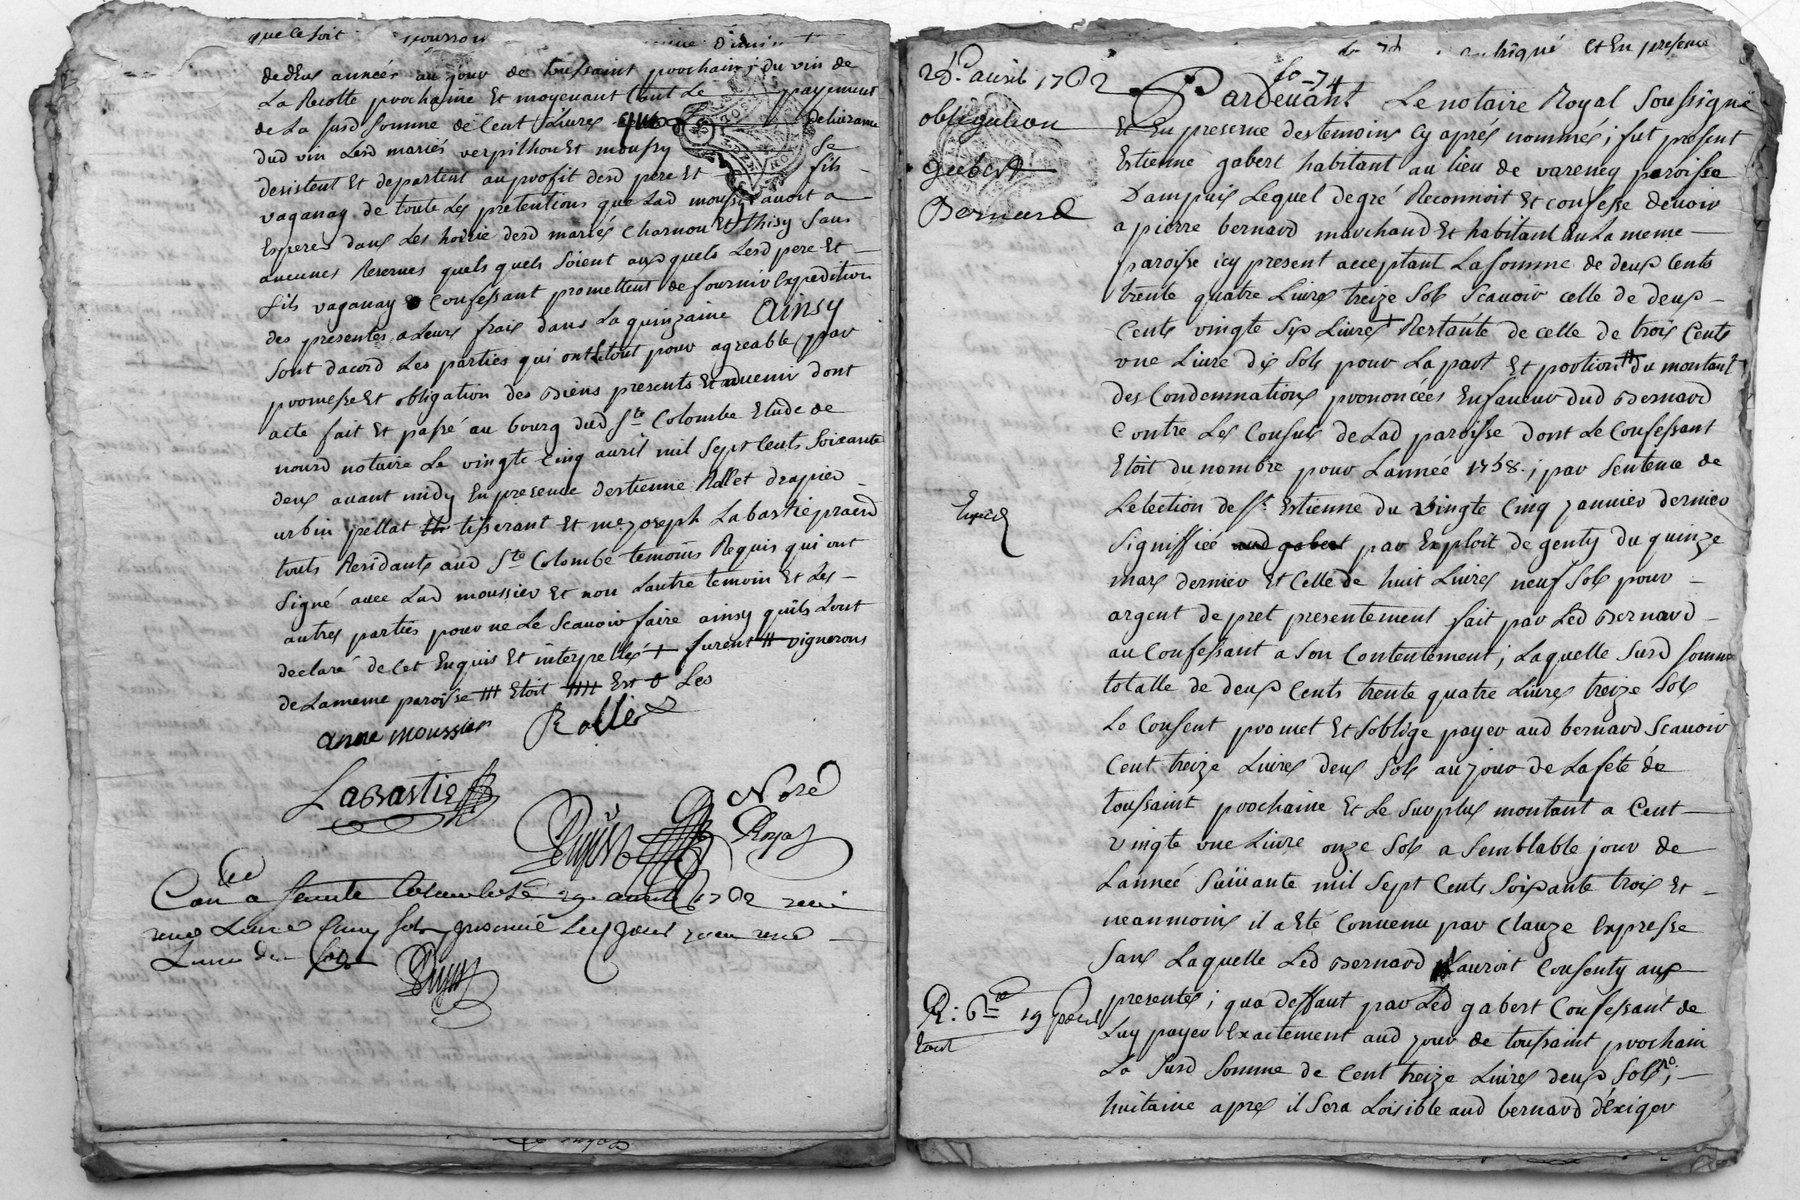 que ce soit
dedeux anneés au jour de toussaint prochain ; du vin de
La Recolte prochaine Et moyenant tout Le payement
de La susd somme de Cent Livres delivrance
dud vin Lesd mariés verpilhou Et moussy se
desistent Et departent au profit desd pere Et fils
vaganay de toute Les pretentions que Lad moussy avoit a
Esperer dans Les hoirie desd mariés Charnou Et thisy Sans
aucunes Reserves quels quels soient auxquels Lesd pere Et
fils vaganay Confessant promettent de fournir Expedition
des presentes a Leurs frais dans La quinzaine Ainsy
sont dacord Les parties qui ont Le tout pour agreable par
promesse Et obligation des Biens presents Et advenir dont
acte fait Et passé au bourg dud Ste Colombe Etude de
nourd notaire Le vingte Cinq avril mil Sept Cents Soixante
deux avant midy En presence d'estienne Rollet drapier
urbin pellat tisserant Et me joseph Labastie praend
touts Residants aud Ste Colombe temoins Requis qui ont
Signé avec Lad moussier Et non Lautre temoin Et Les
autres parties pour ne Le Scavoir faire ainsy quils Lont
declaré de Cet Enquis Et interpellés + furent # vignerons
de La meme paroisse ### Etoit #### Est Les
anne moussier Rollet
Labastie
Noré
Royal
Con a sainte Colombe Le 29. avril 1762 recu
une Livre Cinq Sols
et En presence
fo 74
25e avril 1762
obligation
Gabert
Bernard
Pardevant Le notaire Royal Soussigné
Et En presence des temoins Cy aprés nommés ; fut present
Estienne gabert habitant au lieu de vareney paroisse
Dampuis Lequel degré Reconnoit Et confesse devoir
a pierre bernard marchand Et habitant En La meme
paroisse icy present acceptant La somme de deux Cents
trente quatre Livres treize Sols Scavoir celle de deux
Cents vingte Six Livres Restante de celle de trois Cents
une Livre dix Sols pour La part Et portion # du montant
des Condemnations prononcées En faveur dud Bernard
Contre Les Consuls de Lad paroisse dont Le Confessant
Etoit du nombre pour Lanneé 1758. ; par Sentence de
Lelection de St Estienne du vingte Cinq janvier dernier
Expéd
Signiffieé aud gabert par Exploit de genty du quinze
mars dernier Et Celle de huit Livres neuf Sols pour
argent de pret presentement fait par Led Bernard
au Confessant a Son Contentement ; Laquelle Susd Somme
totalle de deux Cents trente quatre Livres treize Sols
Le Confent promet Et Soblige payer aud bernard Scavoir
Cent treize Livres deux Sols au jour de La fete de
toussaint prochaine Et Le Surplus montant a Cent
vingte une Livre onze Sols a Semblable jour de
Lanneé Suivante mil Sept Cents Soixante trois Et
neanmoins il a Eté Convenu par Clauze Expresse
Sans Laquelle Led Bernard N'auroit Consenty aux
presentes ; qua deffaut par Led gabert Confessant de
Luy payer Exactement aud jour de toussaint prochain
La Susd Somme de Cent treize Livres deux Sols ;
huitaine apres il Sera Loisible aud bernard d'Exiger